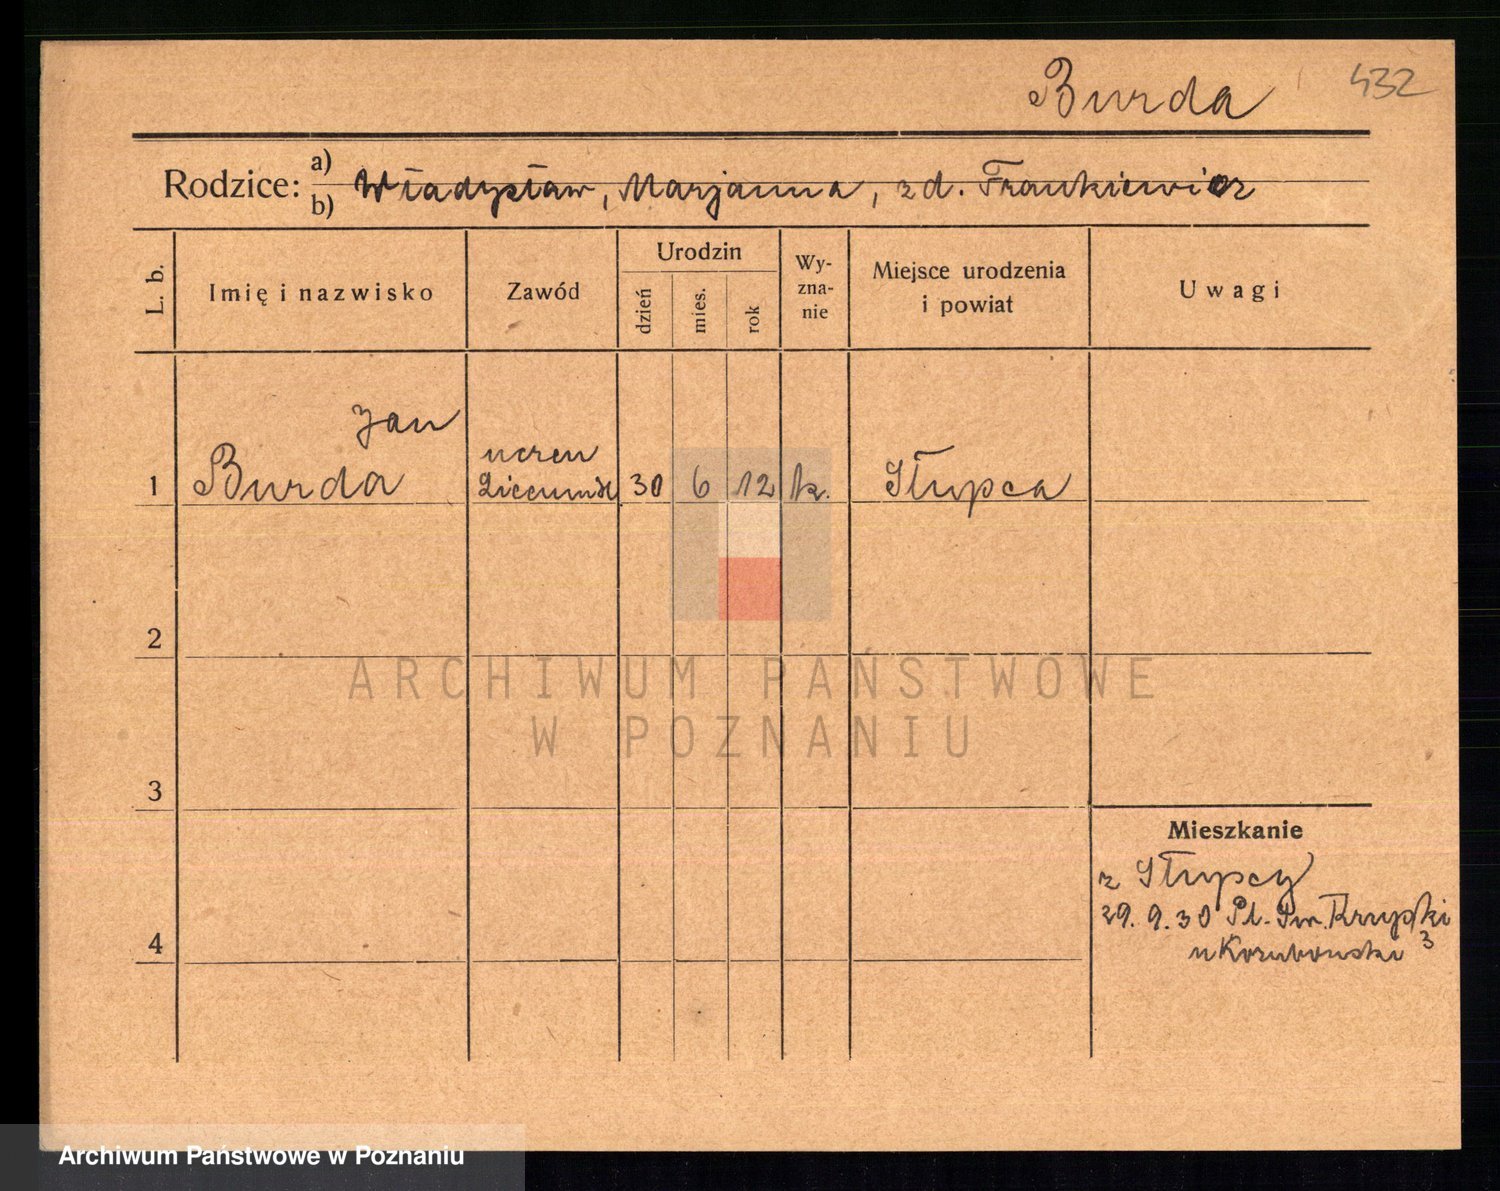 Burda 432
Rodzice: a) b) Władysław, Marjanna, zd. Frankiewicz
L. b.
Imię i nazwisko
Zawód
Urodzin
dzień
mies.
rok
Wy-
zna-
nie
Miejsce urodzenia
i powiat
Uwagi
Jan
1 Burda
uczeń
30 6 12 k. Słupca
2
3
4
ARCHIWUM PAŃSTWOWE
W POZNANIU
Mieszkanie
z Słupcy
29. 9. 30 Pl. Św.
3
Archiwum Państwowe w Poznaniu